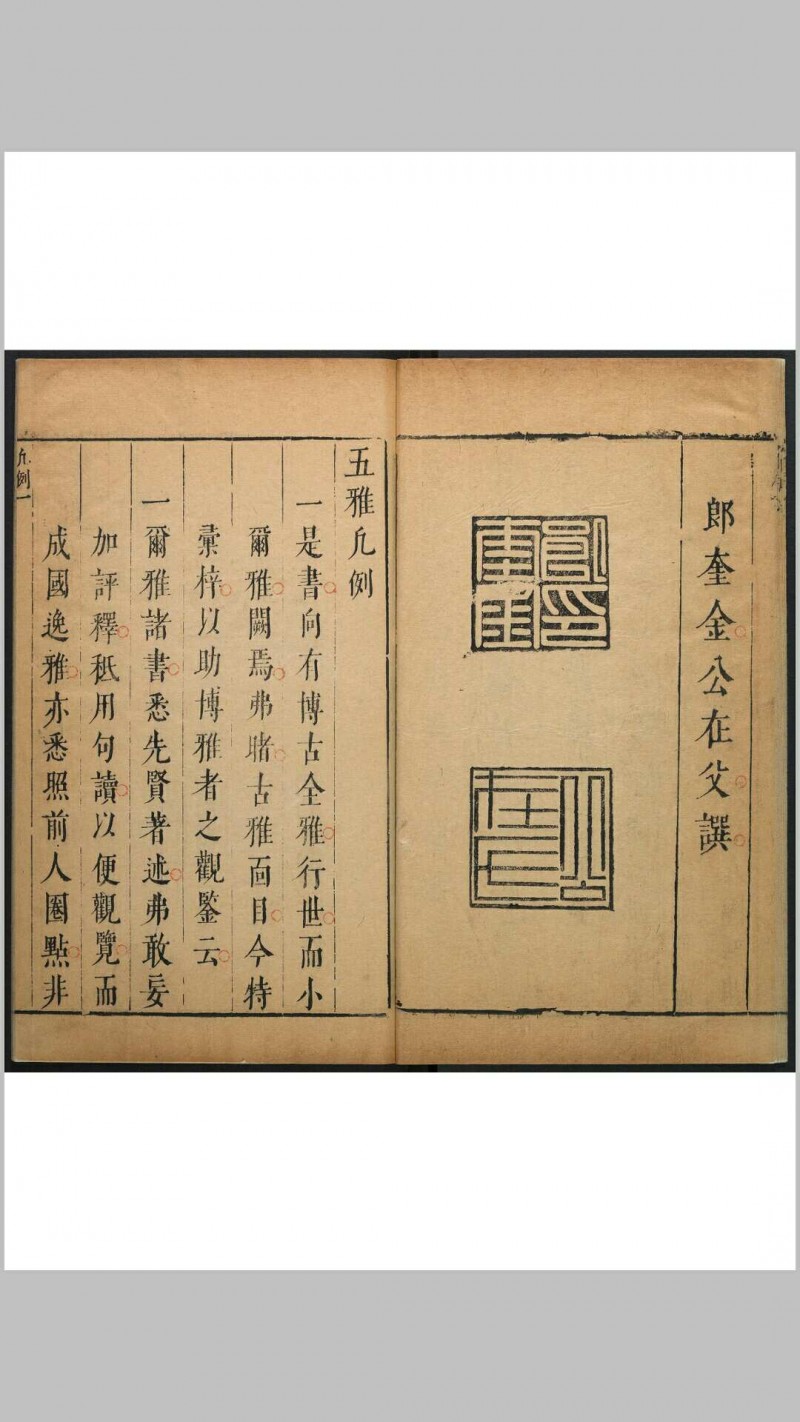 郎奎金公在父譔
五雅凡例
一是書向有博古全雅行世而小
爾雅闕焉弗睹古雅面目今特
彙梓以助博雅者之觀鑒云
一爾雅諸書悉先賢著述弗敢妄
加評釋秪用句讀以便觀覽而
成國逸雅亦悉照前人圈點非
凡例一